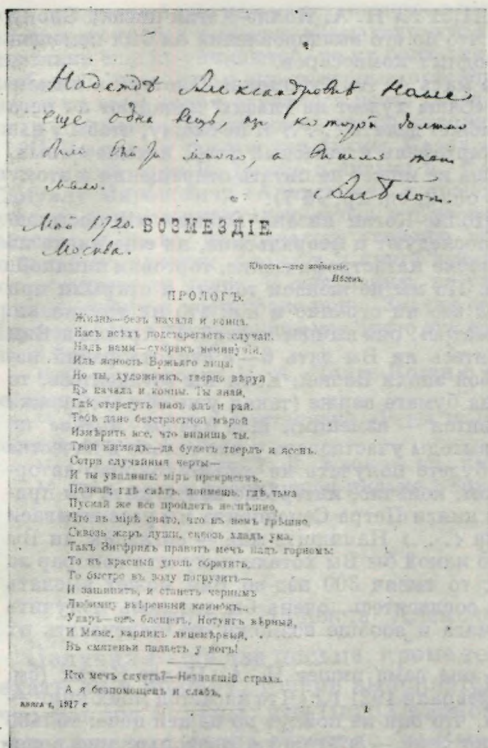 Надежде Александровне Нолле
еще одна вещь, из которой должно
было выйти много, а вышло так
мало.
Ал Блок.
Май 1920.
Москва.
ВОЗМЕЗДІЕ.
Юность—это возмездіе.
Ибсенъ.
ПРОЛОГЪ.
Жизнь—безъ начала и конца.
Насъ всѣхъ подстерегаетъ случай.
Надъ нами—сумракъ неминучій,
Иль ясность Божьяго лица.
Но ты, художникъ, твердо вѣруй
Въ начала и концы. Ты знай,
Гдѣ стерегутъ насъ адъ и рай.
Тебѣ дано безстрастной мѣрой
Измѣрить все, что видишь ты.
Твой взглядъ—да будетъ твердъ и ясенъ.
Сотри случайныя черты—
И ты увидишь: міръ прекрасенъ.
Познай, гдѣ свѣтъ, поймешь, гдѣ тьма.
Пускай же все пройдетъ неспѣшно,
Что въ мірѣ свято, что въ немъ грѣшно,
Сквозь жаръ души, сквозь хладъ ума.
Такъ Зигфридъ правитъ мечъ надъ горномъ:
То въ красный уголь обратитъ,
То быстро въ воду погрузитъ—
И зашипитъ, и станетъ чернымъ
Любимцу ввѣренный клинокъ...
Ударъ—онъ блещетъ, Нотунгъ вѣрный,
И Миме, карликъ лицемѣрный,
Въ смятеньи падаетъ у ногъ!
Кто мечъ скуетъ?—Незнавшій страха.
А я безпомощенъ и слабъ,
книга 1, 1917 г
1